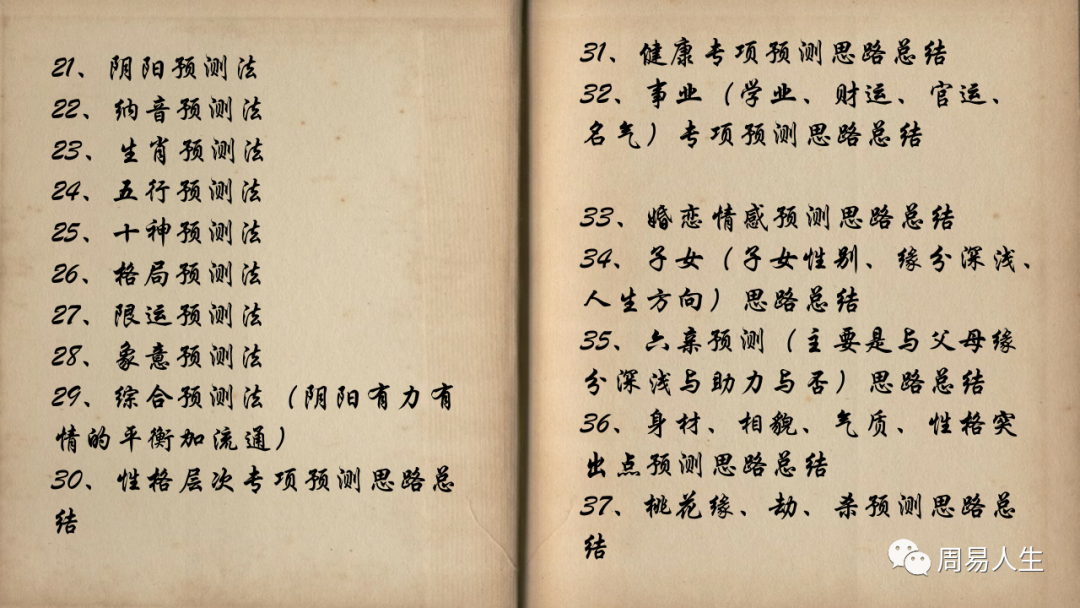 21、阴阳预测法
22、纳音预测法
23、生肖预测法
24、五行预测法
25、十神预测法
26、格局预测法
27、限运预测法
28、象意预测法
29、综合预测法（阴阳有力有
情的平衡加流通）
30、性格层次专项预测思路总
结
31、健康专项预测思路总结
32、事业（学业、财运、官运、
名气）专项预测思路总结
33、婚恋情感预测思路总结
34、子女（子女性别、缘分深浅、
人生方向）思路总结
35、六亲预测（主要是与父母缘
分深浅与助力与否）思路总结
36、身材、相貌、气质、性格突
出点预测思路总结
37、桃花缘、劫、杀预测思路总
结
周易人生